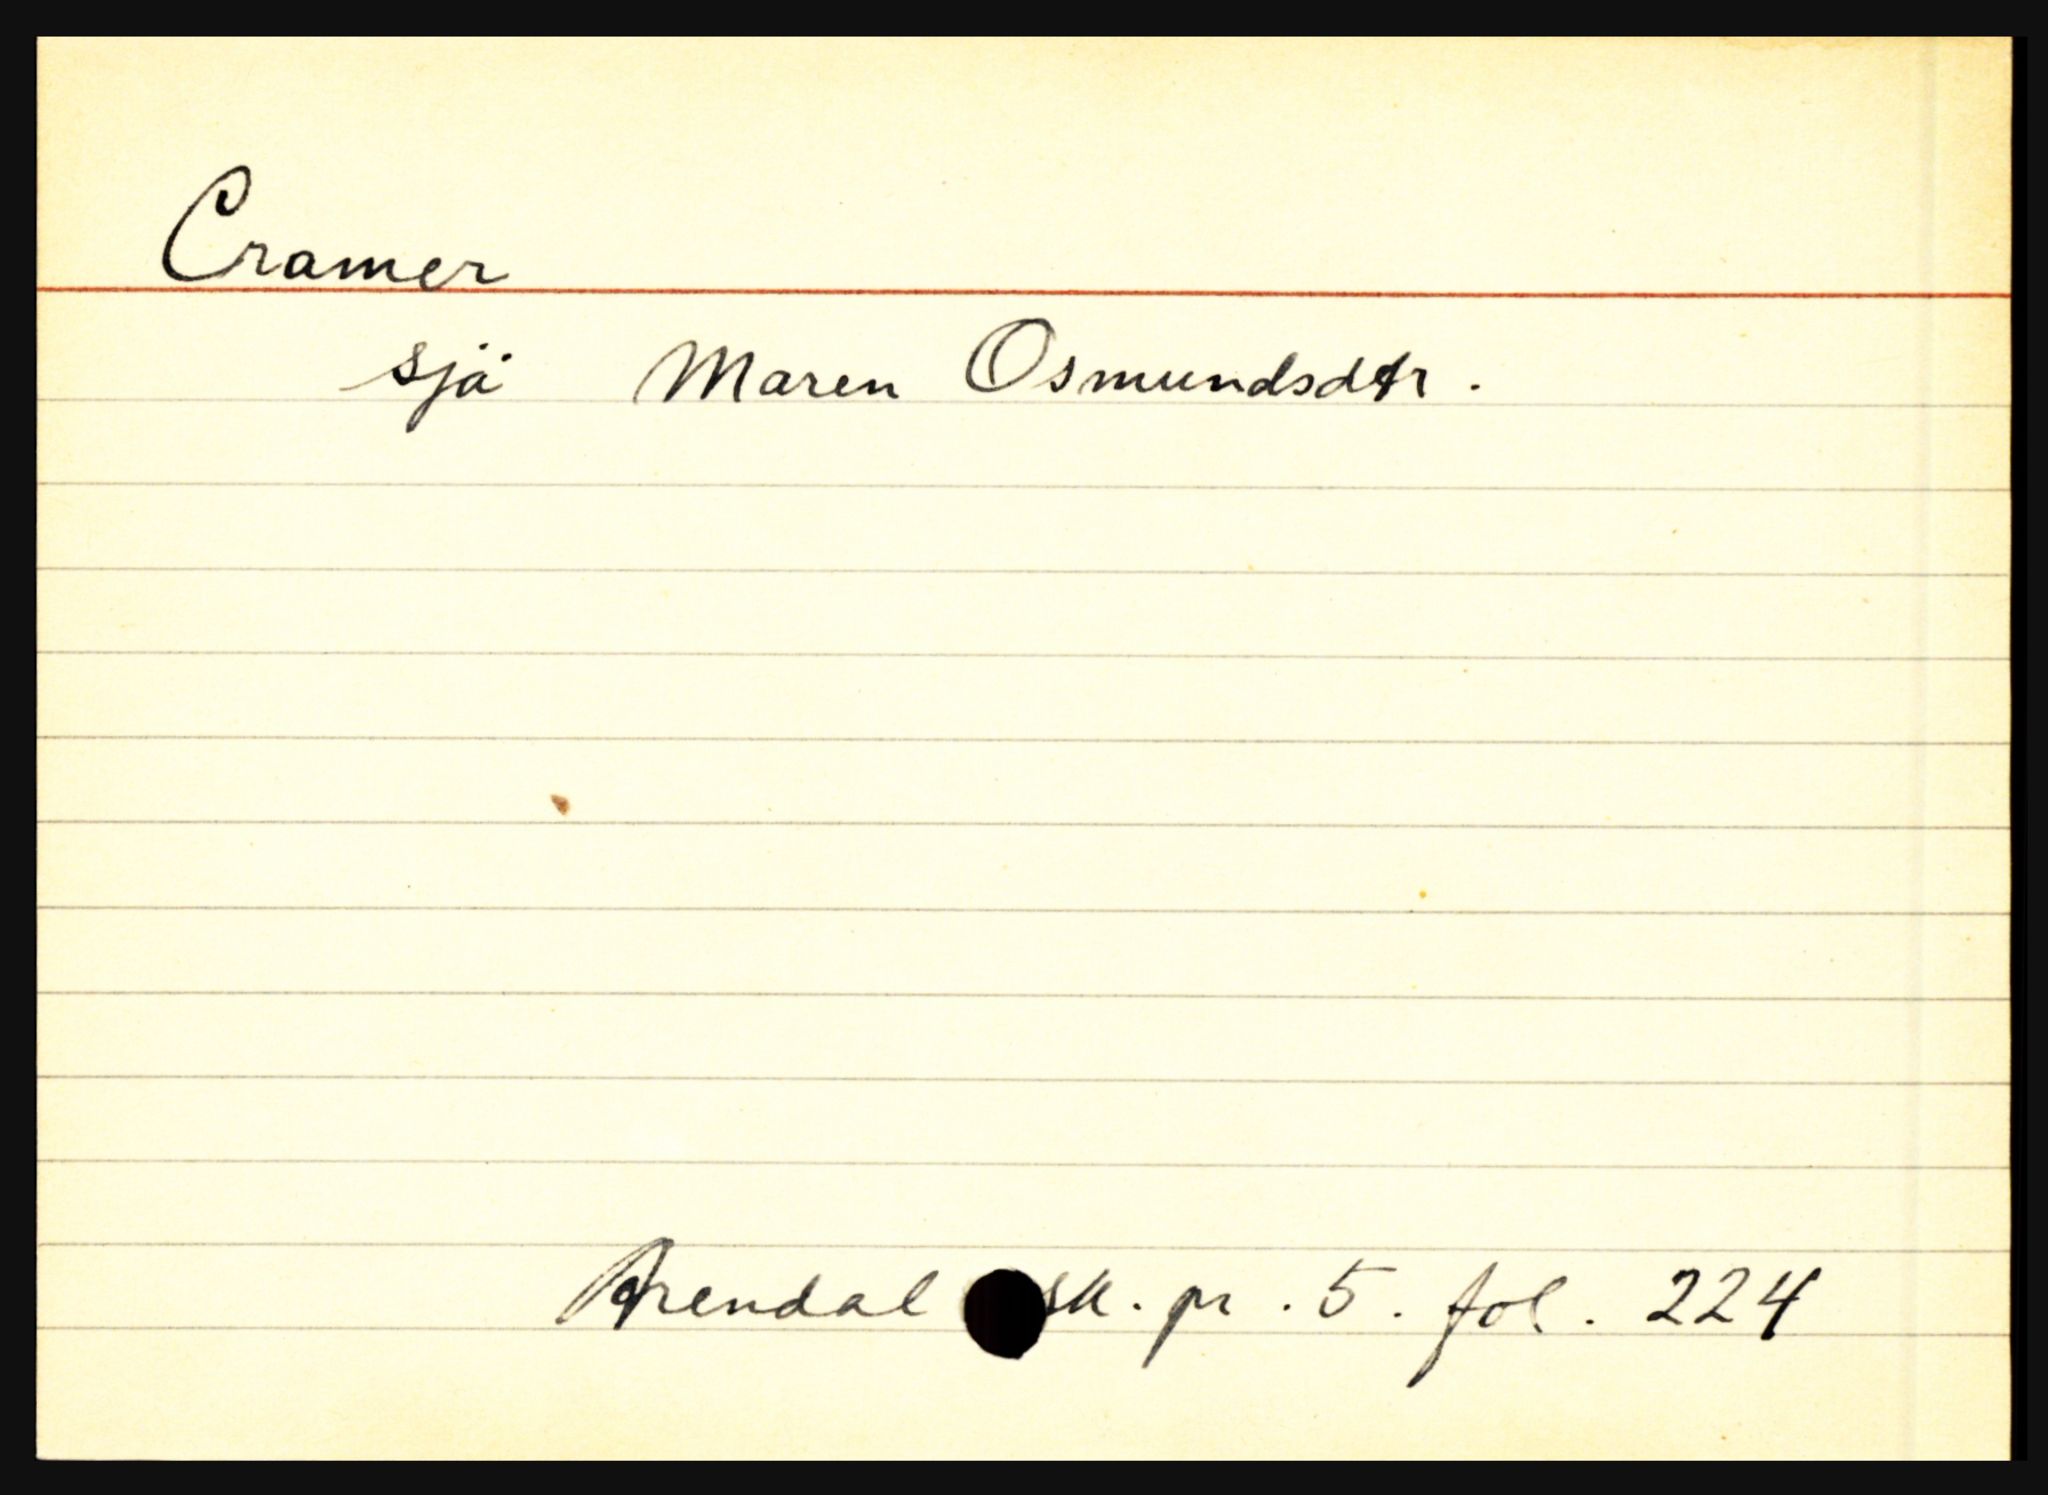 Cramer
sjå Maren Osmundsdtr.
Arendal sk. pr. 5. fol. 224